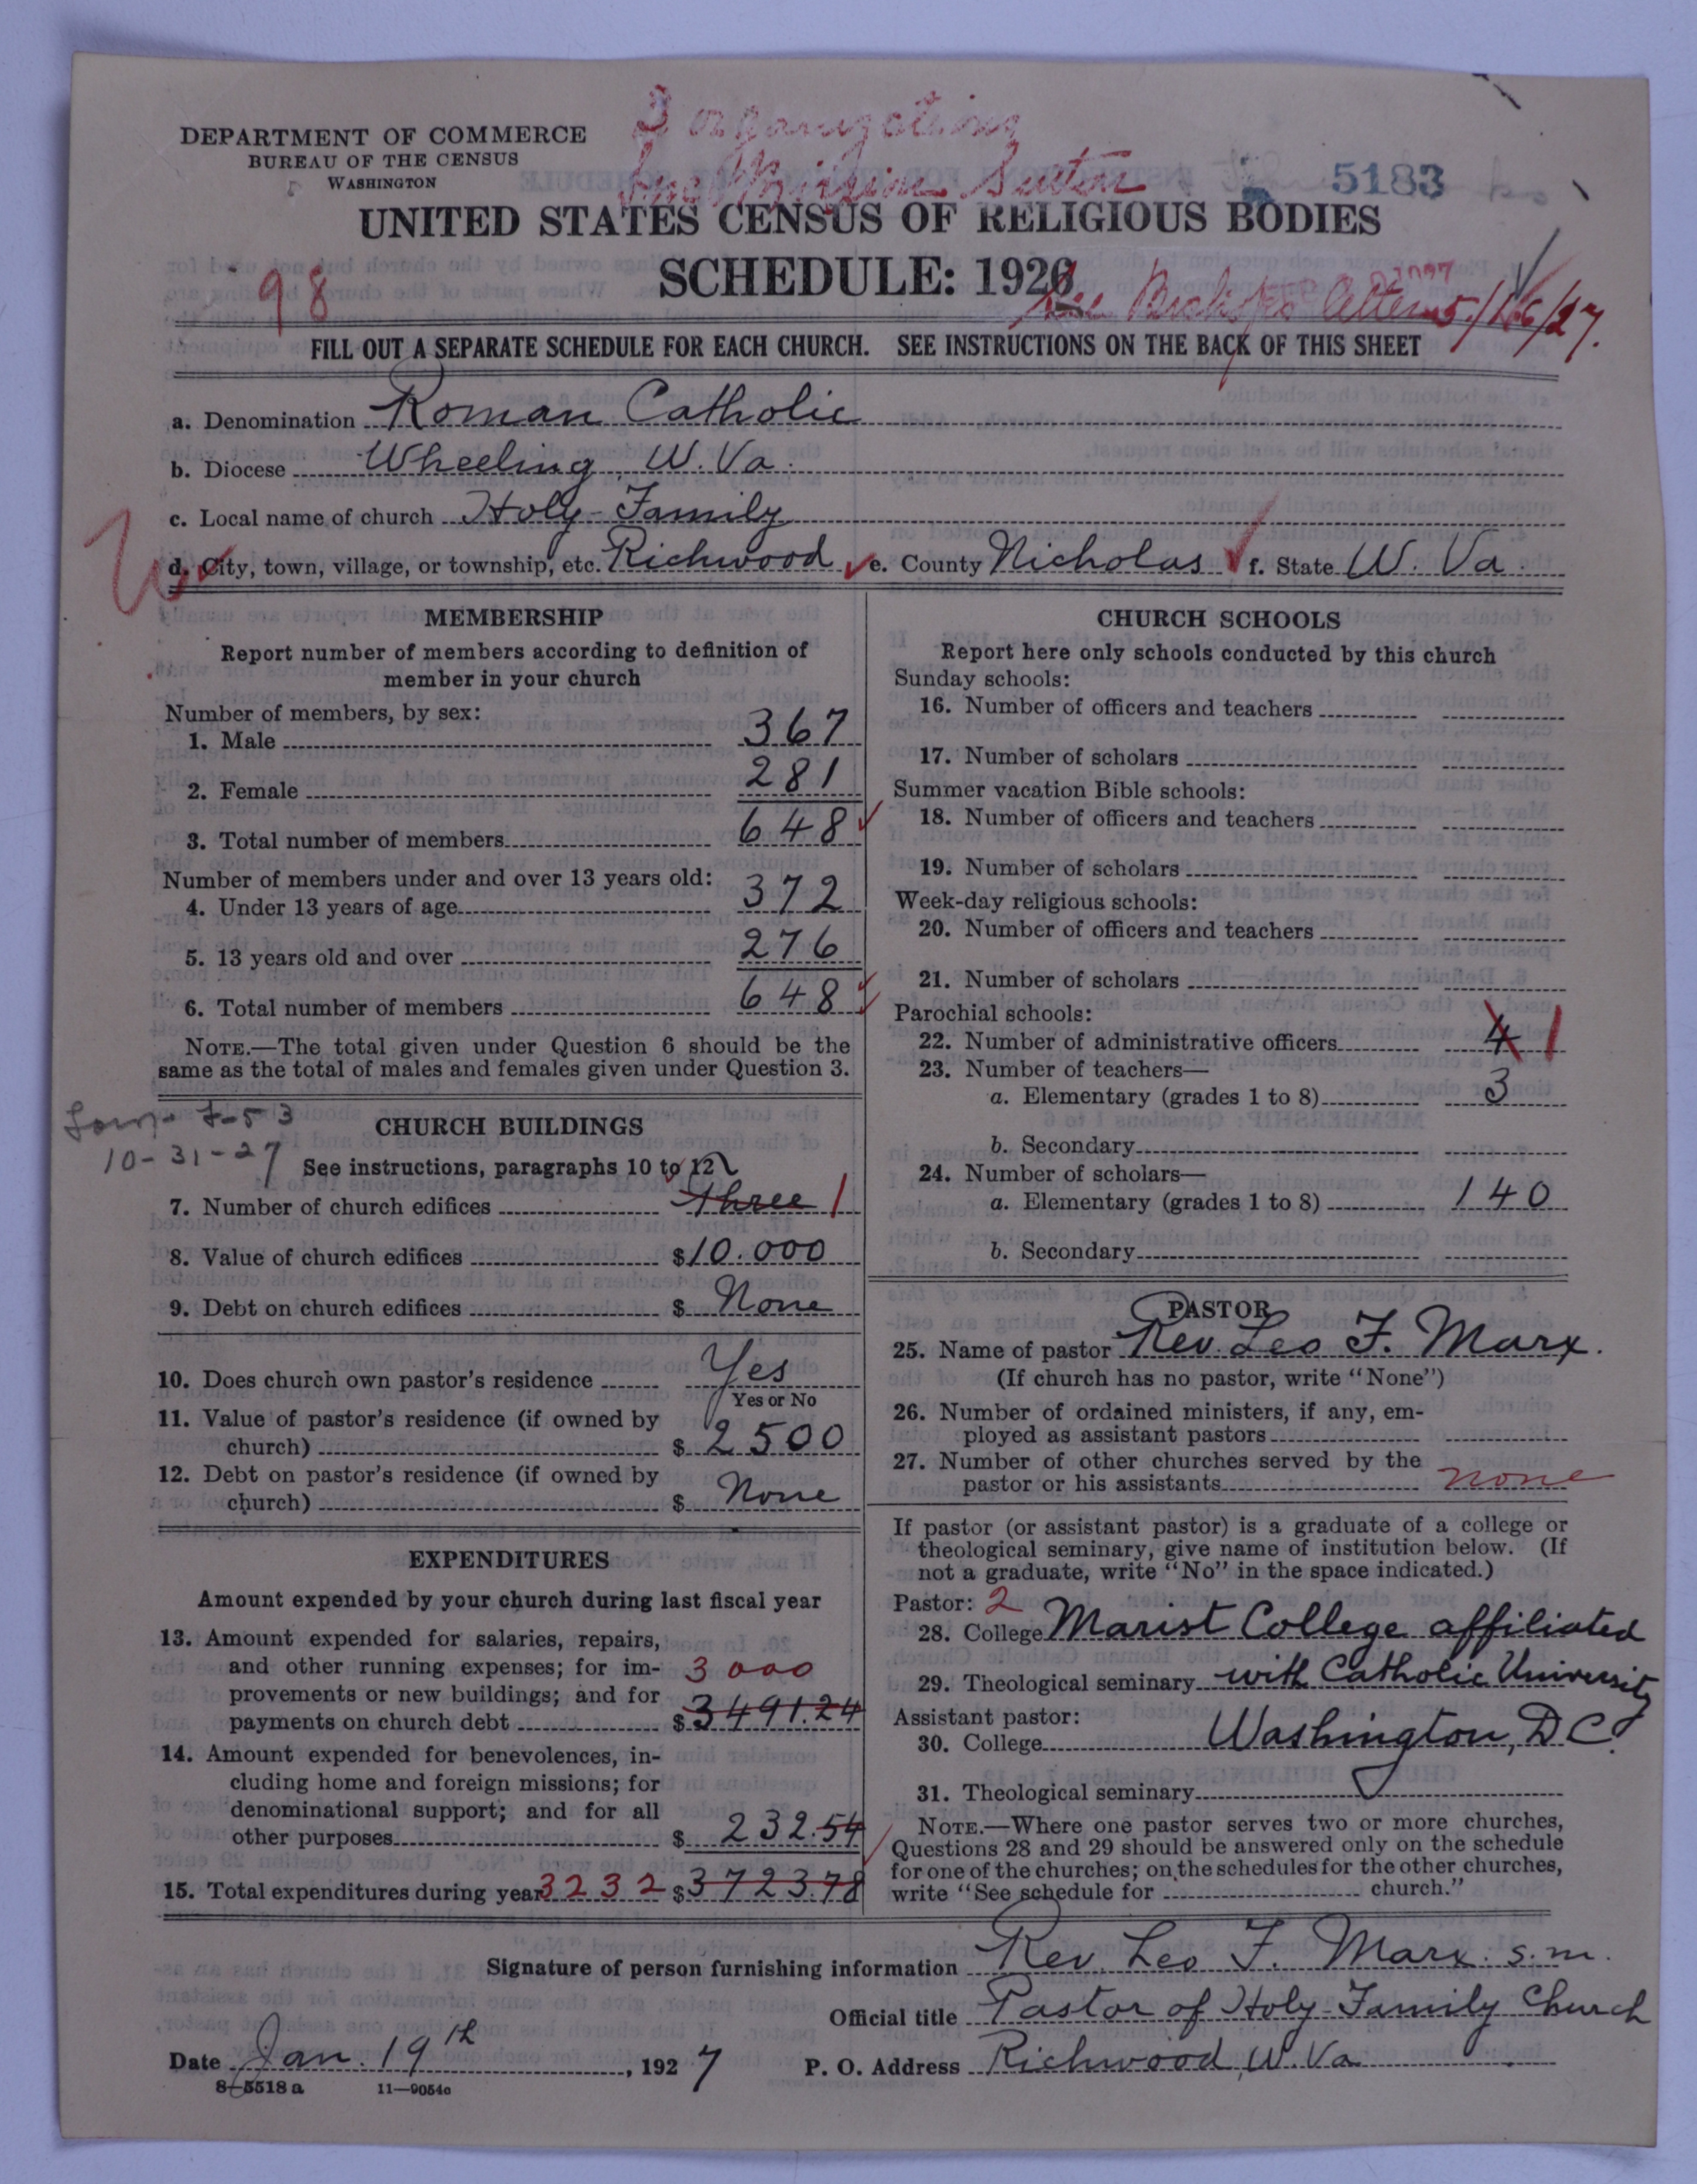 3 organizations
DEPARTMENT OF COMMERCE
BUREAU OF THE CENSUS
WASHINGTON
5183
UNITED STATES CENSUS OF RELIGIOUS BODIES
98
SCHEDULE: 1926
See 5/16/27.
FILL OUT A SEPARATE SCHEDULE FOR EACH CHURCH. SEE INSTRUCTIONS ON THE BACK OF THIS SHEET
a. Denomination Roman Catholic
b. Diocese Wheeling W. Va.
c. Local name of church Holy-Family
d. City, town, village, or township, etc. Richwood e. County Nicholas f. State W. Va.
MEMBERSHIP
Report number of members according to definition of
member in your church
Number of members, by sex:
1. Male 367
2. Female 281
3. Total number of members 648
Number of members under and over 13 years old:
4. Under 13 years of age 372
5. 13 years old and over 276
6. Total number of members 648
NOTE.—The total given under Question 6 should be the
same as the total of males and females given under Question 3.
10-31-27
CHURCH BUILDINGS
See instructions, paragraphs 10 to 12
7. Number of church edifices three 1
8. Value of church edifices $10.000
9. Debt on church edifices $ None
10. Does church own pastor's residence Yes
Yes or No
11. Value of pastor's residence (if owned by
church) $ 2500
12. Debt on pastor's residence (if owned by
church) $ None
EXPENDITURES
Amount expended by your church during last fiscal year
13. Amount expended for salaries, repairs,
and other running expenses; for im- 3000
provements or new buildings; and for
payments on church debt $3491.24
14. Amount expended for benevolences, in-
cluding home and foreign missions; for
denominational support; and for all
other purposes $ 232.54
15. Total expenditures during year 3232 $3723.78
CHURCH SCHOOLS
Report here only schools conducted by this church
Sunday schools:
16. Number of officers and teachers
17. Number of scholars
Summer vacation Bible schools:
18. Number of officers and teachers
19. Number of scholars
Week-day religious schools:
20. Number of officers and teachers
21. Number of scholars
Parochial schools:
22. Number of administrative officers 4 1
23. Number of teachers—
a. Elementary (grades 1 to 8) 3
b. Secondary
24. Number of scholars—
a. Elementary (grades 1 to 8) 140
b. Secondary
PASTOR
25. Name of pastor Rev. Leo F. Marx.
(If church has no pastor, write "None")
26. Number of ordained ministers, if any, em-
ployed as assistant pastors
27. Number of other churches served by the
pastor or his assistants none
If pastor (or assistant pastor) is a graduate of a college or
theological seminary, give name of institution below. (If
not a graduate, write "No" in the space indicated.)
Pastor: 2
28. College Marist College affiliated
29. Theological seminary with Catholic University
Assistant pastor:
30. College Washington, D.C.
31. Theological seminary
NOTE.—Where one pastor serves two or more churches,
Questions 28 and 29 should be answered only on the schedule
for one of the churches; on the schedules for the other churches,
write "See schedule for church."
Signature of person furnishing information Rev. Leo F. Marx. s.m.
Official title Pastor of Holy-Family Church
Date Jan. 19th, 1927 P. O. Address Richwood, W. Va.
8-5518 a 11—9054c